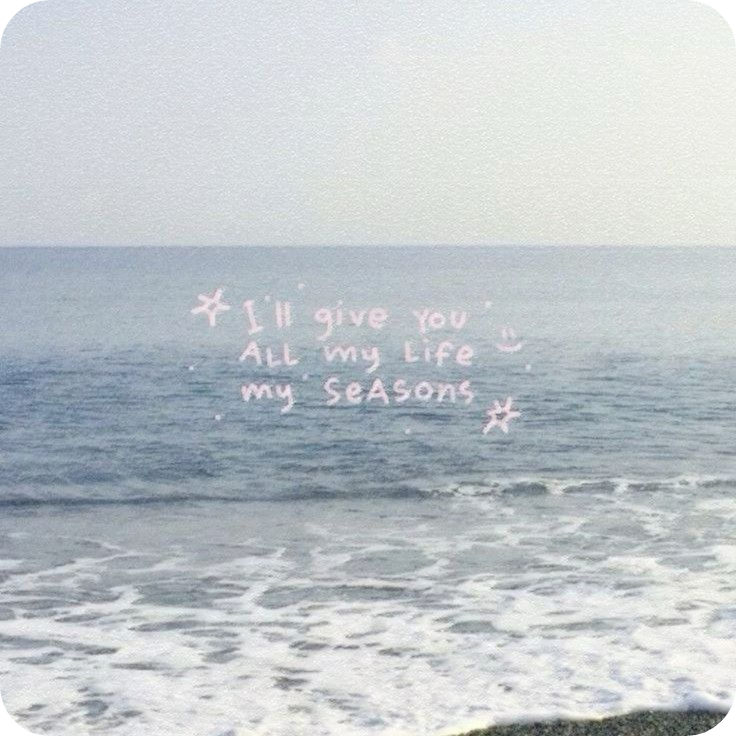 I'll give you
ALL my Life
my SeASons